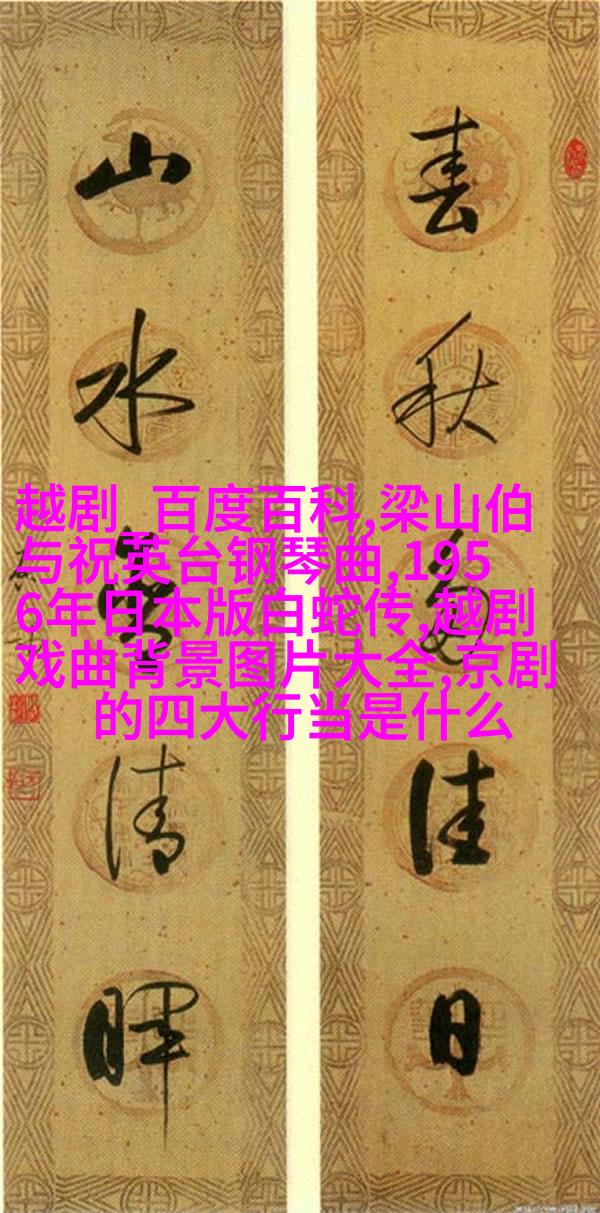 春秋多佳日
山水清暉
越剧 百度百科,梁山伯
与祝英台钢琴曲,195
6年日本版白蛇传,越剧
戏曲背景图片大全,京剧
的四大行当是什么